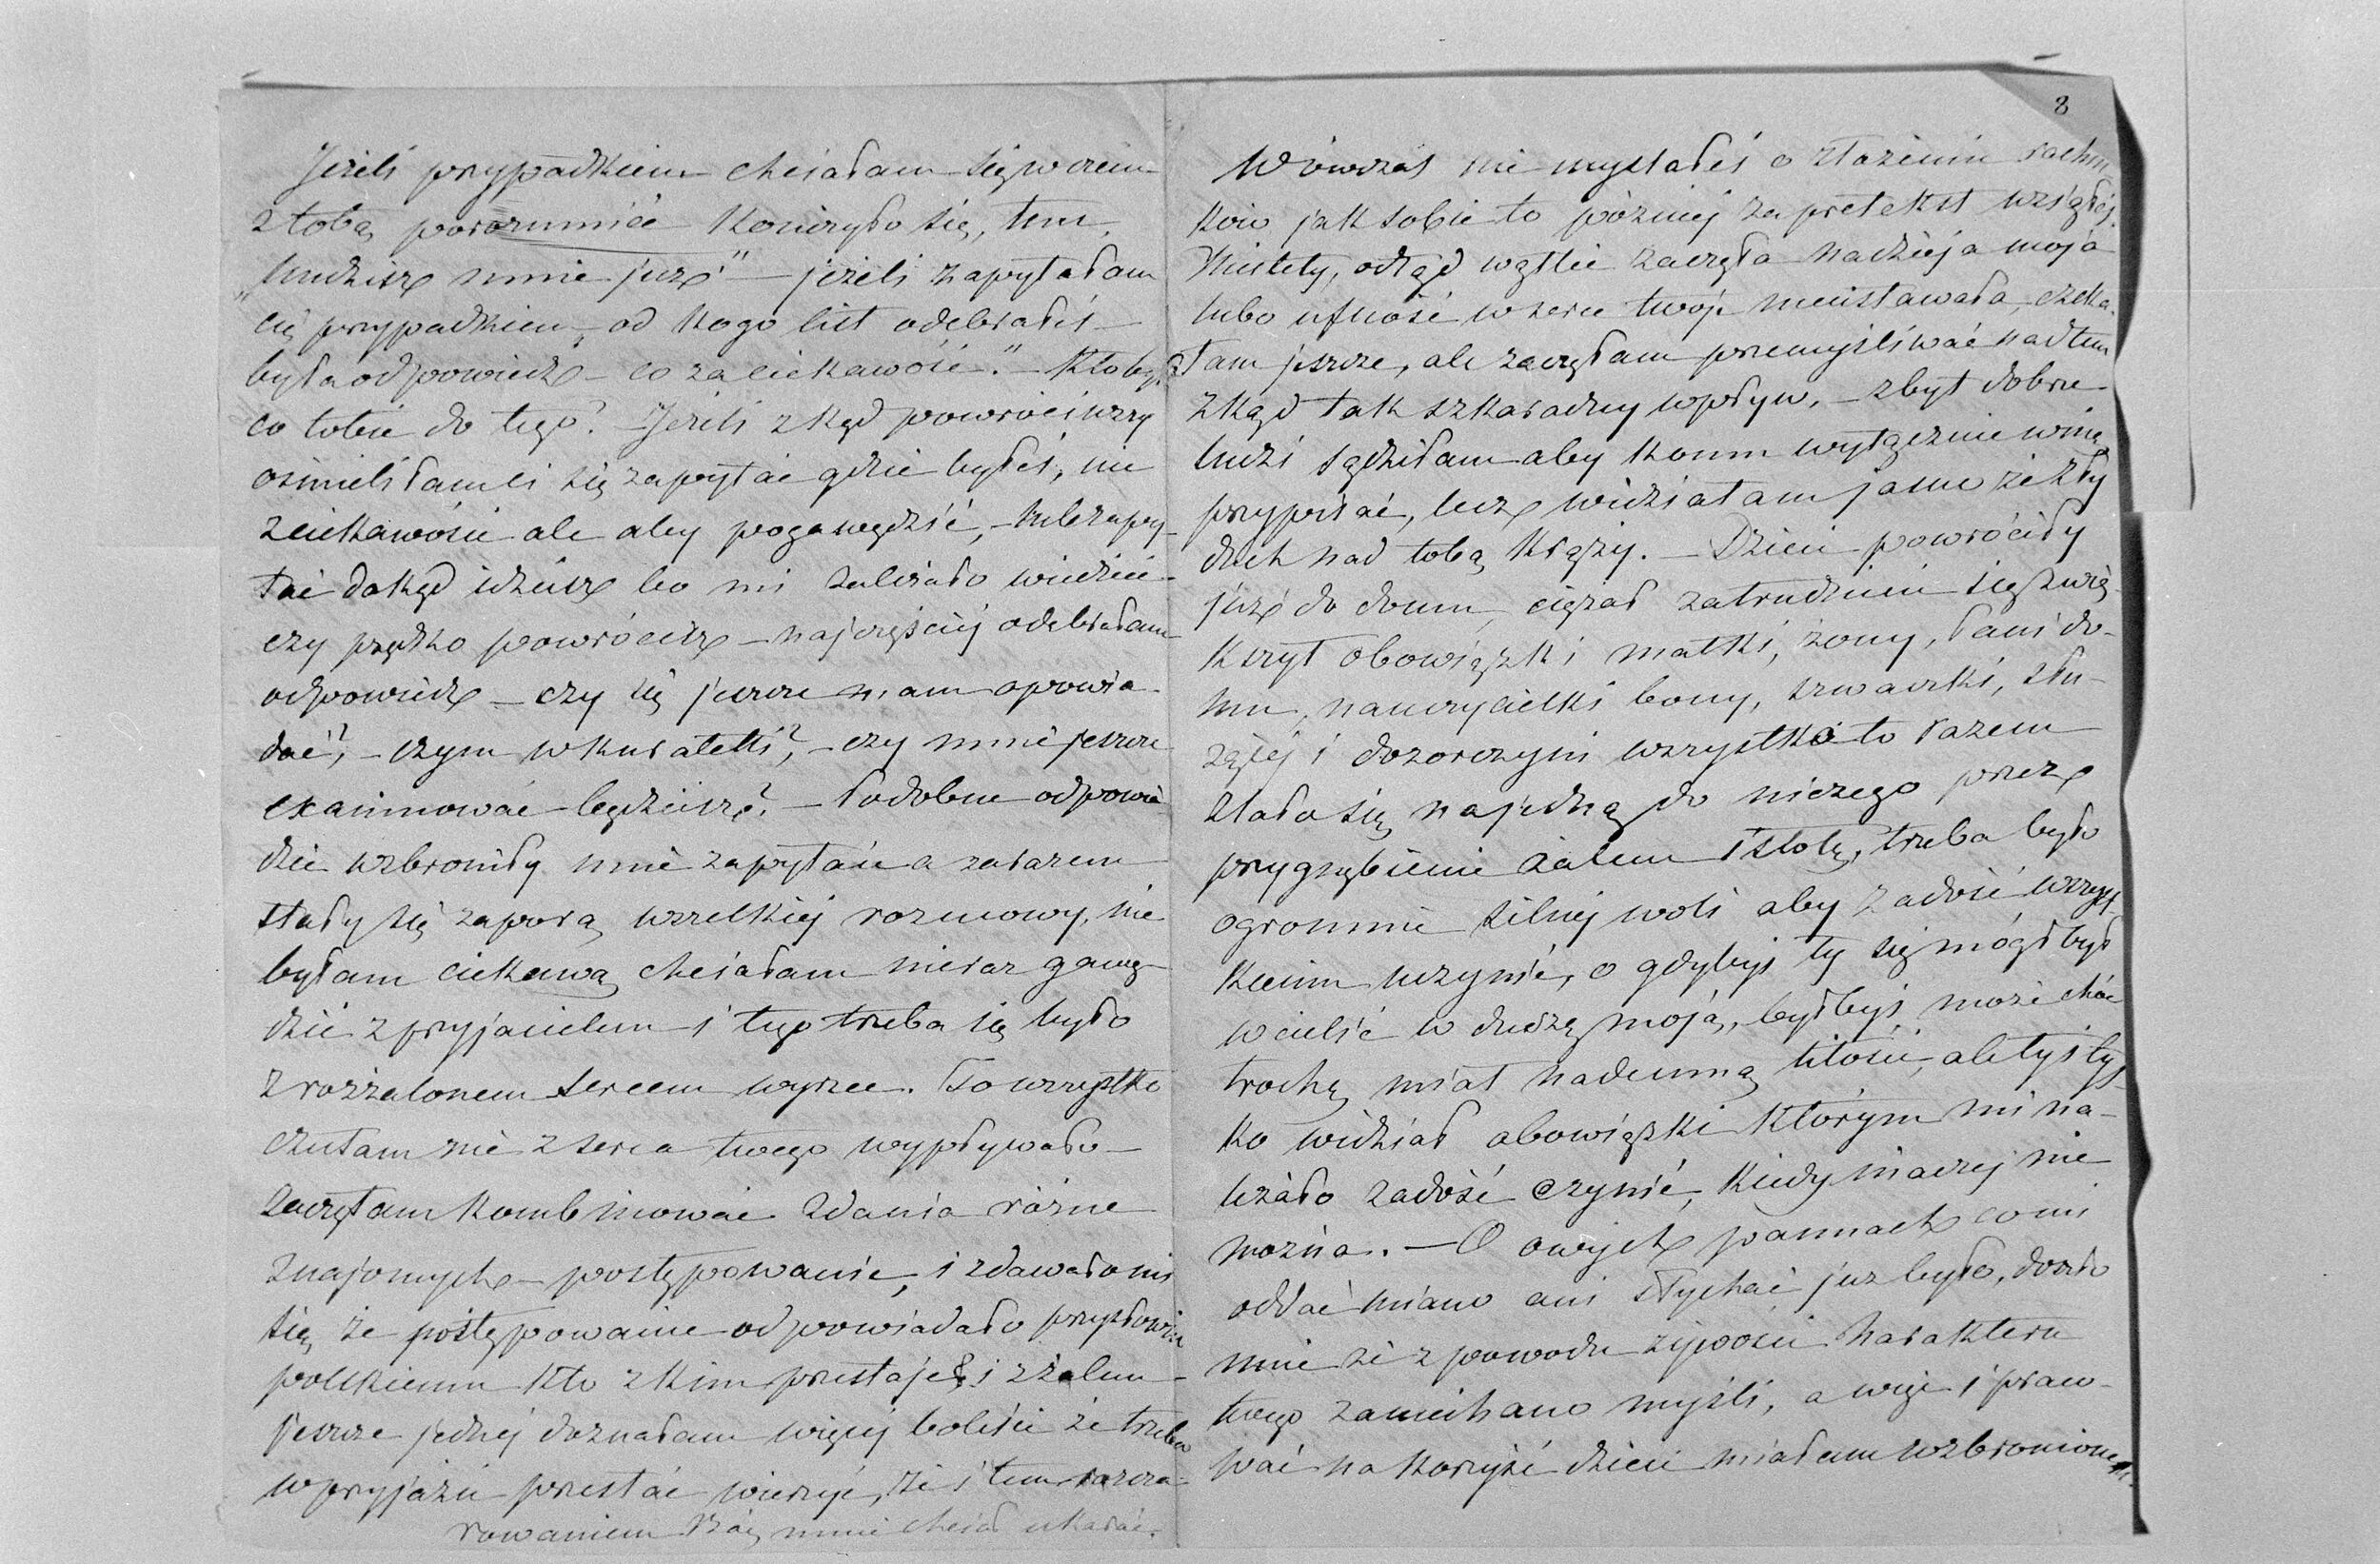 Jeżeli przypadkiem chciałam się w czem
z tobą porozumieć kończyło się, tem,
„nudzisz mnie już" — jeżeli zapytałam
cię przypadkiem, od kogo list odebrałeś —
była odpowiedź — co za ciekawość." — Kto był?
co tobie do tego? — Jeżeli z kąd powróciwszy
ośmieliłam ci się zapytać gdzie byłeś, nie
z ciekawości ale aby pogawędzić, — lub zapy-
tać dokąd idziesz bo mi zależało wiedzieć
czy prędko powrócisz — najczęściej odebrałam
odpowiedź — czy się jeszcze mam opowia-
dać?, — czym w kurateli?, — czy mnie jeszcze
examinować będziesz?, — Podobne odpowie
dzie wzbroniły mnie zapytań a zarazem
stały się zaporą wszelkiej rozmowy, nie
byłam ciekawą chciałam nieraz gawę-
dzić z przyjacielem i tego trzeba się było
z rozżalonem sercem wyrzec. To wszystko
czułam nie z serca twego wypływało —
zaczęłam kombinować zdania różne
znajomych — postępowanie, i zdawało mi
się że postępowanie odpowiadało przysłowiu
polskiemu kto z kim przestaje & i z żalem
jeszcze jednej doznałam więcej boleści że trzeba
w przyjaźń przestać wierzyć, że i tem rozcza-
rowaniem Bóg mnie chciał ukarać.
8
Wówczas nie myślałeś o złożeniu rachu
ków jak sobie to później za pretekst wziąłeś.
Niestety, odtąd wątleć zaczęła nadzieja moja
lubo ufność w serce twoje nieustawała, czeka-
łam jeszcze, ale zaczęłam przemyśliwać nad tem
z kąd tak szkaradny wpływ, — zbyt dobrze
ludzi sądziłam aby komu wyłącznie winę
przypisać, lecz widziałam jasno że zły
duch nad tobą krąży. — Dzieci powróciły
już do domu, ciężar zatrudnień się zwię-
kszył obowiązki matki, żony, pani do-
mu, nauczycielki bony, szwaczki, słu-
żącej i dozorczyni wszystko to razem
zlało się na jedną do niczego przez
przygnębienie żalem istotę, trzeba było
ogromnie silnej woli aby zadość wszyst-
kiemu uczynić, o gdybyś ty się mógł był
wcielić w duszę moją, byłbyś może choć
trochę miał nademną litość, ale tyś tyl-
ko widział obowiązki którym mi na-
leżało zadość czynić, kiedy inaczej nie
można. — O owych pannach co mi
oddać miano ani słychać już było, doszło
mnie że z powodu żywości harakteru
twego zaniechano myśli, a więc i praco-
wać na korzyść dzieci miałam wzbronionem.